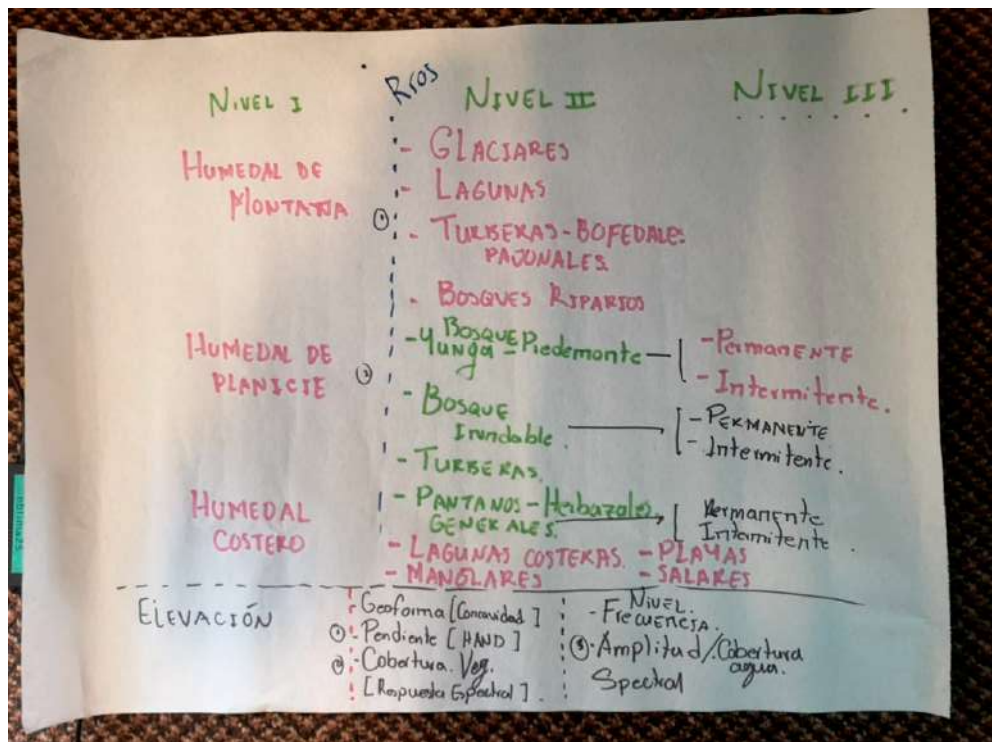 Ríos
NIVEL I
NIVEL II
NIVEL III
HUMEDAL DE
MONTAÑA
①
- GLACIARES
- LAGUNAS
- TURBERAS - BOFEDALES
PAJONALES
- BOSQUES RIPARIOS
HUMEDAL DE
PLANICIE
②
- Bosque
Yunga - Piedemonte
- Permanente
- Intermitente.
- Bosque
Inundable.
- PERMANENTE
- Intermitente.
- TURBERAS.
- PANTANOS - Herbazales
GENERALES.
Permanente
Intermitente.
HUMEDAL
COSTERO
- LAGUNAS COSTERAS. - PLAYAS
- MANGLARES - SALARES
ELEVACIÓN
- Geoforma [Concavidad]
① - Pendiente [HAND]
② - Cobertura. Veg.
[Respuesta Espectral].
NIVEL.
- Frecuencia.
③ - Amplitud/Cobertura
agua.
Spectral